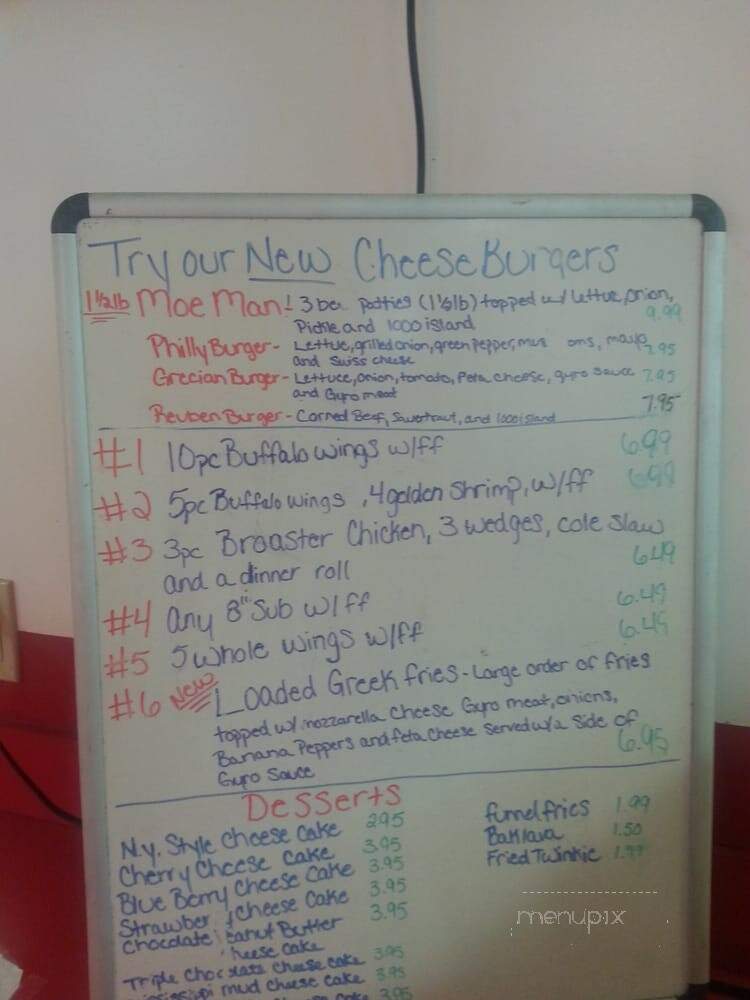 Try our New CheeseBurgers
1 1/2 lb Moe Man! 3 patties (1 1/2 lb) topped w/ lettuce, onion,
Pickle and 1000 island 9.99
Philly Burger - Lettuce, grilled onion, green pepper, mayo, 7.95
and Swiss cheese
Grecian Burger - Lettuce, onion, tomato, Feta cheese, gyro sauce 7.95
and Gyro meat
Reuben Burger - Corned Beef, Sauerkraut, and 1000 island 7.95
#1 10pc Buffalo wings w/ff 6.99
#2 5pc Buffalo wings, 4 golden Shrimp, w/ff 6.99
#3 3pc Broaster Chicken, 3 wedges, cole slaw
and a dinner roll 6.49
#4 any 8" Sub w/ff 6.49
#5 5 whole wings w/ff 6.49
#6 New Loaded Greek fries - Large order of fries
topped w/ mozzarella cheese Gyro meat, onions,
Banana Peppers and feta cheese served w/a side of
Gyro Sauce 6.95
Desserts
N.y. Style cheese cake 2.95
Cherry Cheese cake 3.95
Blue Berry cheese cake 3.95
cheese cake 3.95
chocolate Butter 3.95
cake
Triple chocolate cheese cake 3.95
mud cheese cake 3.95
cake 3.95
funnel fries 1.99
Baklava 1.50
Fried Twinkie 1.99
menupix